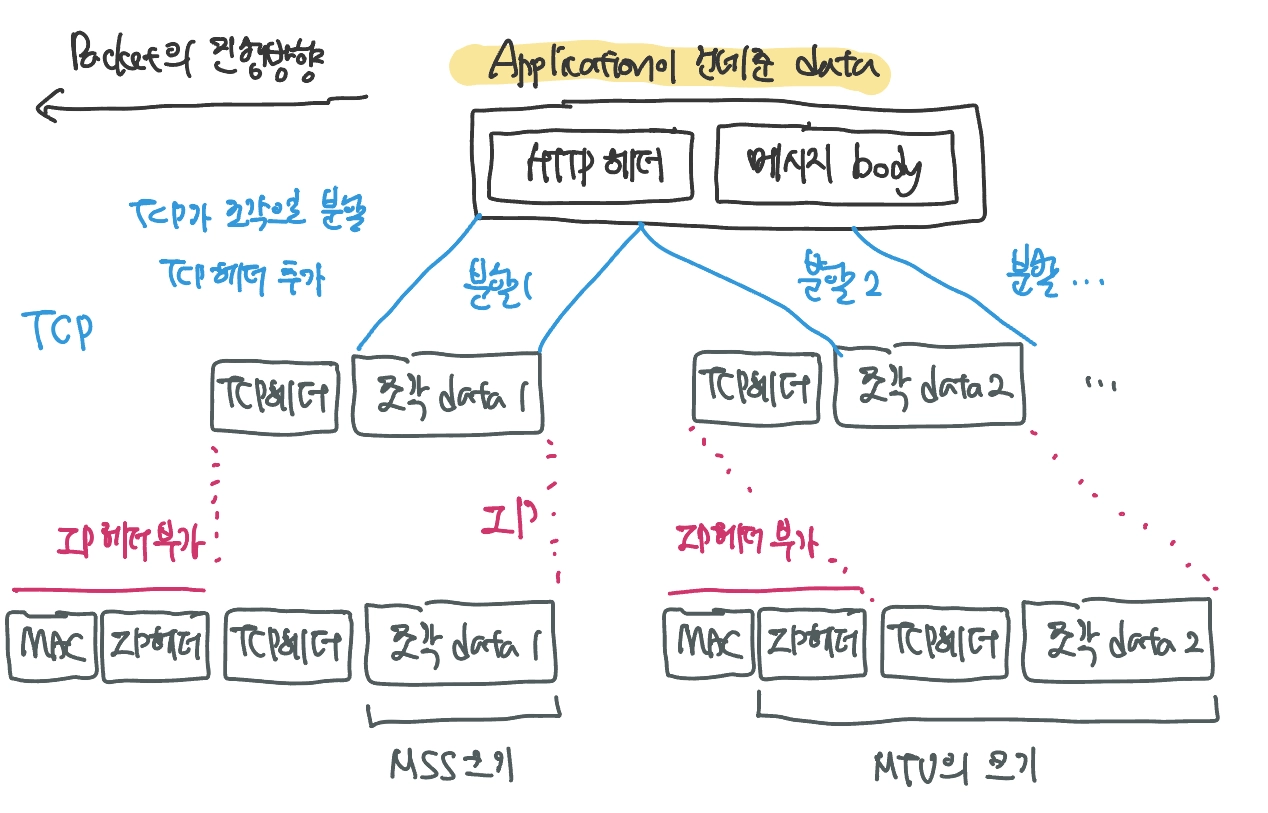 Packet의 진행방향
Application이 건네준 data
HTTP 헤더
메시지 body
TCP가 조각으로 분할
TCP헤더 추가
분할1
분할2
분할 ...
TCP
TCP헤더
조각 data 1
TCP헤더
조각 data 2
...
IP헤더 부가
IP
IP헤더 부가
MAC
IP헤더
TCP헤더
조각 data 1
MAC
IP헤더
TCP헤더
조각 data 2
MSS 크기
MTU의 크기